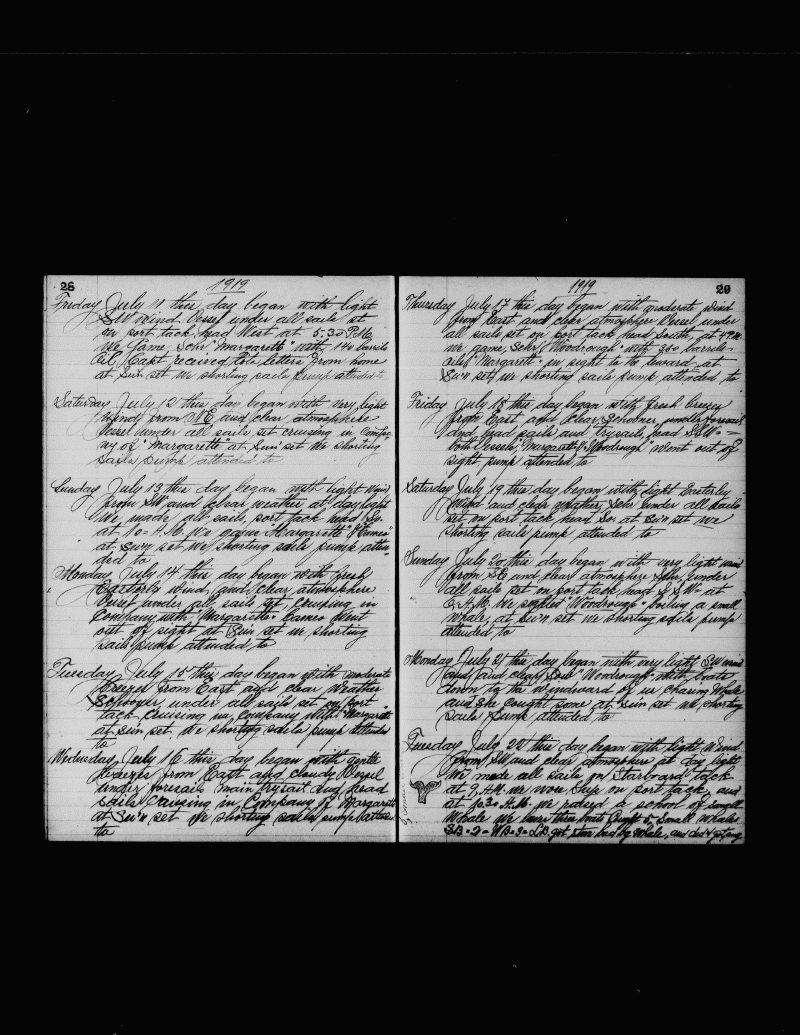 28
1919
Friday July 11 this day began with light
SW wind. Vessel under all sails set
on port tack head West at 5.30 P.M.
We game Schr "Margarett" with 140 barrels
Oil Capt received letters from home
at Sun set we shorting sails pump attended to
Saturday July 12 this day began with very light
wind from NE and clear atmosphere
Vessel under all sails set cruising in Compa-
ny of "Margarett" at Sun set We Shorting
Sails pump attended to
Sunday July 13 this day began with light Wind
from SW and clear weather at day light
We made all sails, port tack head So.
at 10- A.M. We game "Margarett" & "Cameo"
at Sun set we shorting sails pump atten-
ded to
Monday July 14 this day began with fresh
Easterly wind and clear atmosphere
Vessel under all sails set, Crusing in
Company with "Margarett" Cameo Went
out of sight at Sun set we shorting
sails pump attended to
Tuesday July 15 this day began with moderate
breezes from East and clear Weather
Schooner under all sails set on port
tack Cruising in Company With "Margarett"
at sun set We shorting sails pump attended
to
Wednesday July 16 this day began with gentle
breezes from East and cloudy Vessel
under foresails main trysail and head
sails Crusing in Company of Margarett
at Su'n set We shorting sails pump attended
to
29
1919
Thursday July 17 this day began with moderate wind
from East and clear atmosphere Vessel under
all sails set on port tack head South, at 4 P.M.
we game, Schr "Woodrough" with 350 barrels-
oil "Margarett" in sight to the leward at
Su'n set we shorting sails pump attended to
Friday July 18 this day began with fresh breezes
from East and clear, Schooner, under foresail
and head sails and trysails, head SSW-
both Vessels, Margarett & Woodrough Went out of
sight pump attended to
Saturday July 19 this day began with light Easterly
wind and clear weather, Schr under all sails
set on port tack head So. at Su'n set we
shorting sails pump attended to
Sunday July 20 this day began with very light wind
from SE and clear atmosphere Schr. under
all sails set on port tack head S SW- at
A.M. We "Woodrough" boiling a small
whale, at su'n set we shorting sails pump
attended to
Monday July 21 this day began with very light SW wind
and Schr "Woodrough" with boats
down to the windward of us chasing Whale
and she cought some at sun set we shorting
sails pump attended to
Tuesday July 22 this day began with light Wind
from SW and clear atmosphere at day light
We made all sails on Starboard tack
at 9. A.M. we wore Ship on port tack, and
at 10.30 A.M. We raised a school of small
Whale we lower three boats Caught 5, Small Whales
SB-2- WB-3- LB got stove bad by Whale, and did'n get any